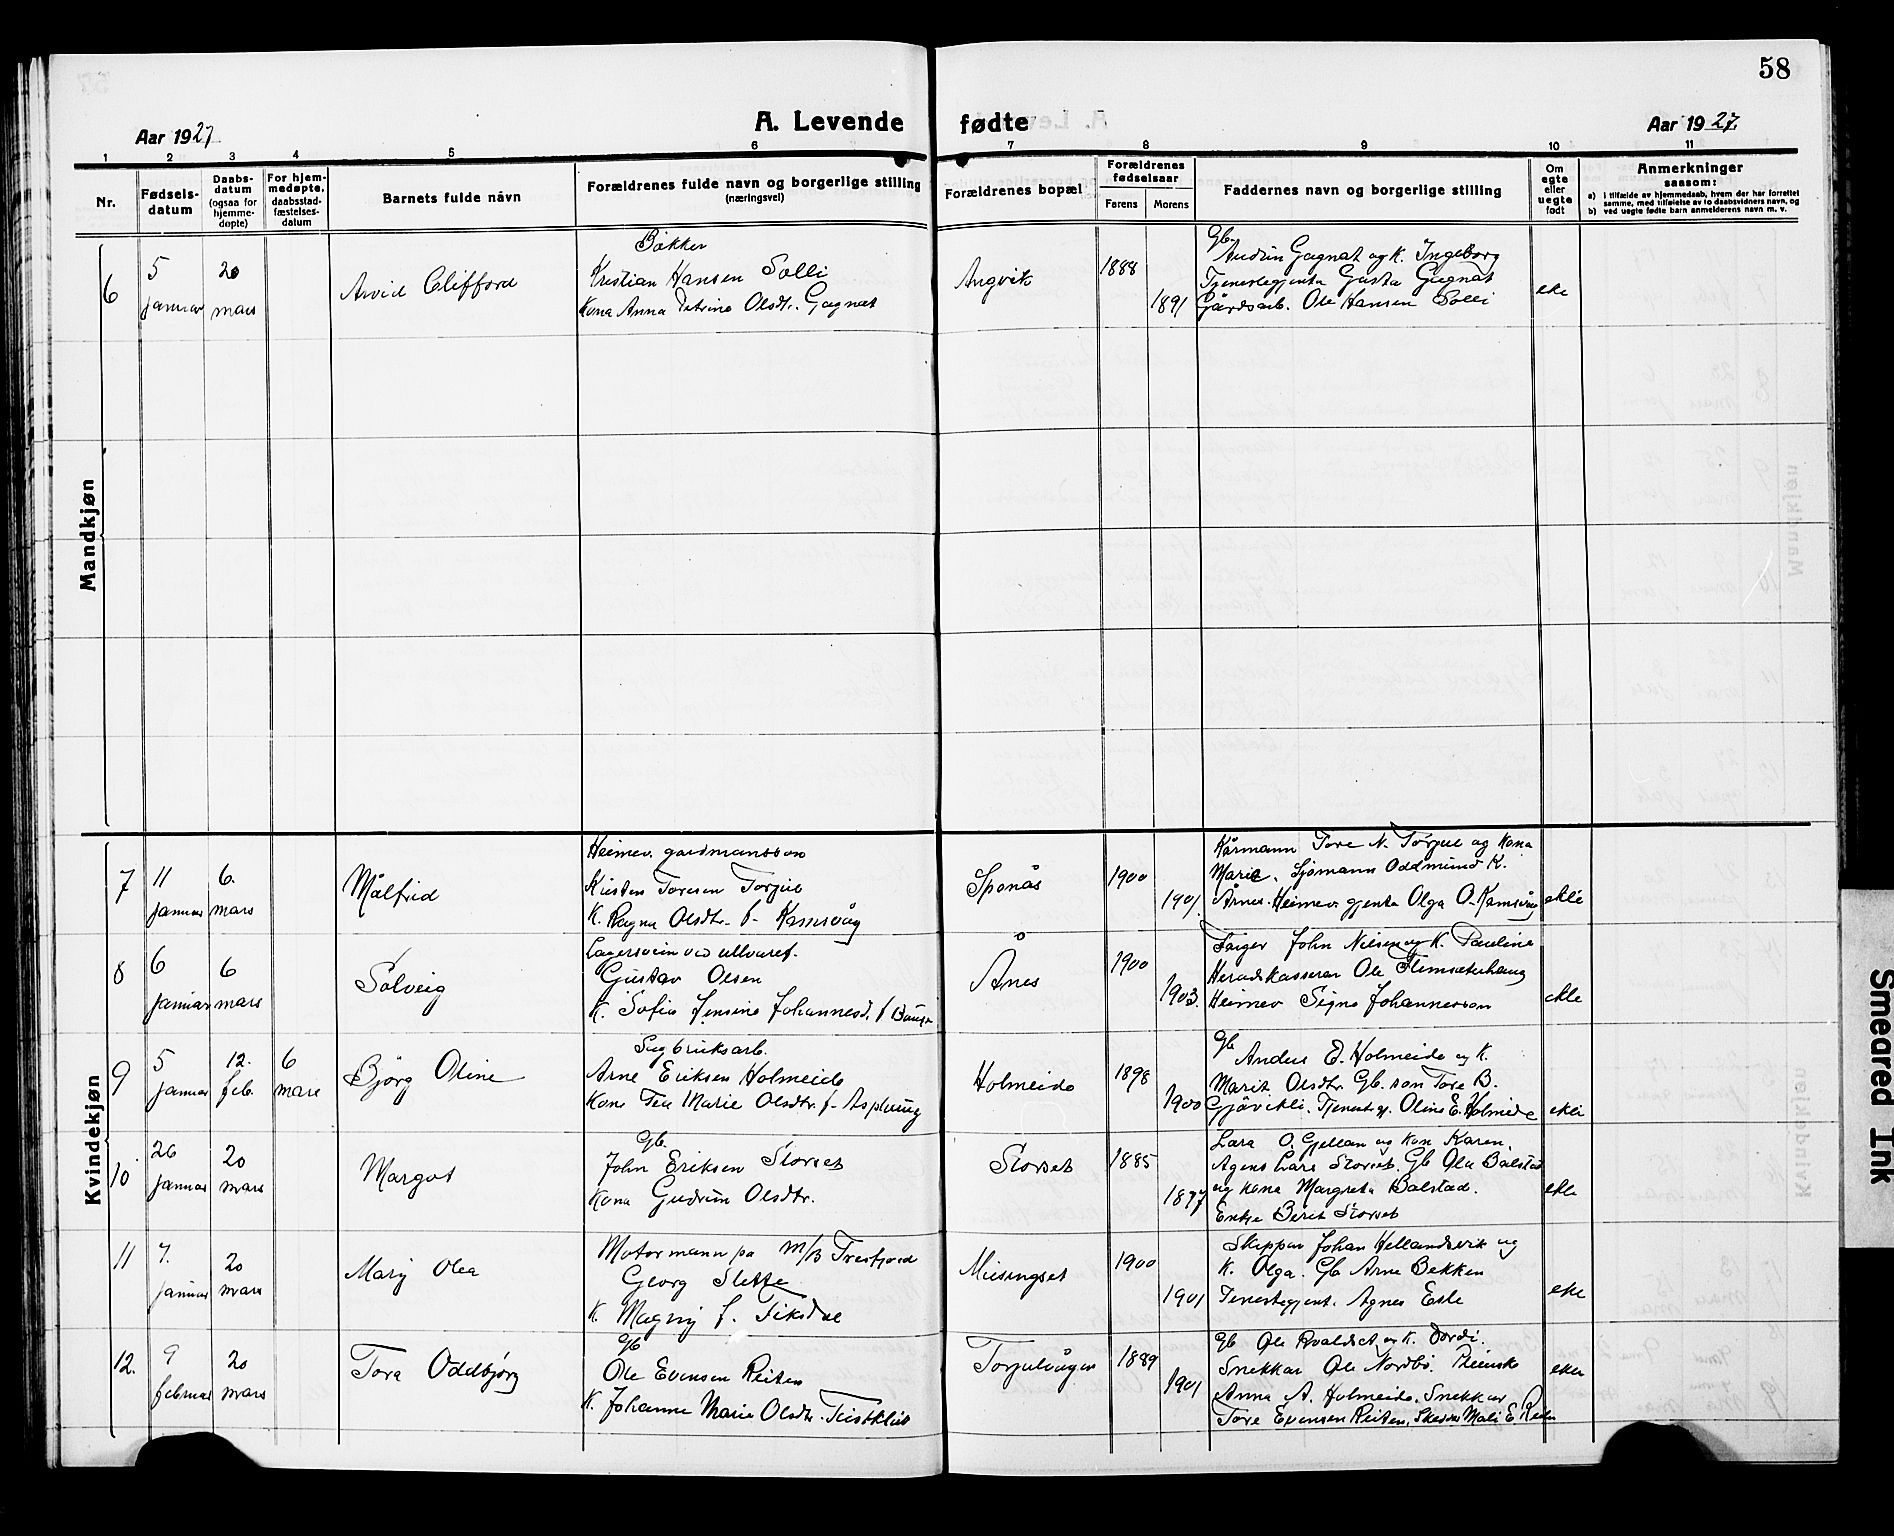 58
Aar 1927
A. Levende fødte
Aar 1927.
1 2 3 4 5 6 7 8 9 10 11
Nr.
Fødsels-
datum
Daabs-
datum
(ogsaa for
hjemme-
døpte)
For hjem-
medøpte,
daabsstad-
fæstelses-
datum
Barnets fulde navn
Forældrenes fulde navn og borgerlige stilling
(næringsvei)
Forældrenes bopæl
Forældrenes
fødselsaar
Farens
Morens
Faddernes navn og borgerlige stilling
Om
egte
eller
uegte
født
Anmerkninger
saasom:
a) i tilfælde av hjemmedaab, hvem der har forrettet
samme, med tilføielse av to daabsvidners navn, og
b) ved uegte fødte barn anmelderens navn m. v.
Mandkjøn
6
5
januar
20
mars
Arvid Clifford
Bakker
Kristian Hansen Solli
Kona Anna Petrine Olsdtr. Gagnat
Angvik
1888
1891
Gb.
Audun Gagnat og K. Ingeborg
Tjenestegjenta Gusta Gagnat
Gårdsarb. Ole Hansen Solli
ekte
Kvindekjøn
7
11
januar
6.
mars
Målfrid
Heimev. gardmannsson
Kristen Toresen Torjul
K. Ragna Olsdtr. f. Kamsvåg
Sponås
1900
1901.
Kårmann Tore N. Torjul og kona
Marie. Sjømann Oddmund K.
Årnes. Heimev. gjenta Olga O. Kamsvåg
ekte
8
6
januar
6
mars
Solveig
Gustav Olsen
K. Sofie Jensine Johannesd. f
Ånes
1900
1903.
John Nilsen og K. Pauline
Heradskasserar Ole Flemsæterhaug
Heimev Signe Johannessen
ekte
9
5
januar
12.
feb.
6
mars
Bjørg Oline
Sagbruksarb.
Arne Eriksen Holmeide
Kona Tea Marie Olsdtr. f. Asphaug
Holmeide
1898
1900
Gb
Anders E. Holmeide og K.
Marit Olsdtr. Gb. son Tore B.
Gjøvikli. Tjenestgj. Oline E. Holmeide
ekte
10
26
januar
20
mars
Margot
Gb.
John Eriksen Storset
Kona Gudrun Olsdtr.
Storset
1885
1897
Lars O. Gjellan og kon Karen.
Lars Storset. Gb Ola Bolstad
og kona Margreta Bolstad.
Enkje Berit Storset
ekte
11
7.
januar
20
mars
Mary Olea
Motormann pa M/B Tresfjord
Georg Slette
K. Magny f. Tiksdal
Meisingset
1900
1901
Skipper Johan Hellandsvik og
K. Olga. Gb Arne Bekken
Tenestegjent. Agnes Eske
ekte
12.
9
februar
20
mars
Tora Oddbjørg
Gb
Ole Evensen Reiten
K. Johanne Marie Olsdtr. Teistklub
Torjulvågen
1889
1901
Gb Ole Roaldset og K. Dordi.
Snekkar Ole Nordbø.
Anna A. Holmeide. Snekkar
Tore Evensen Reiten, Mali E. Reiten
ekte
Smeared Ink